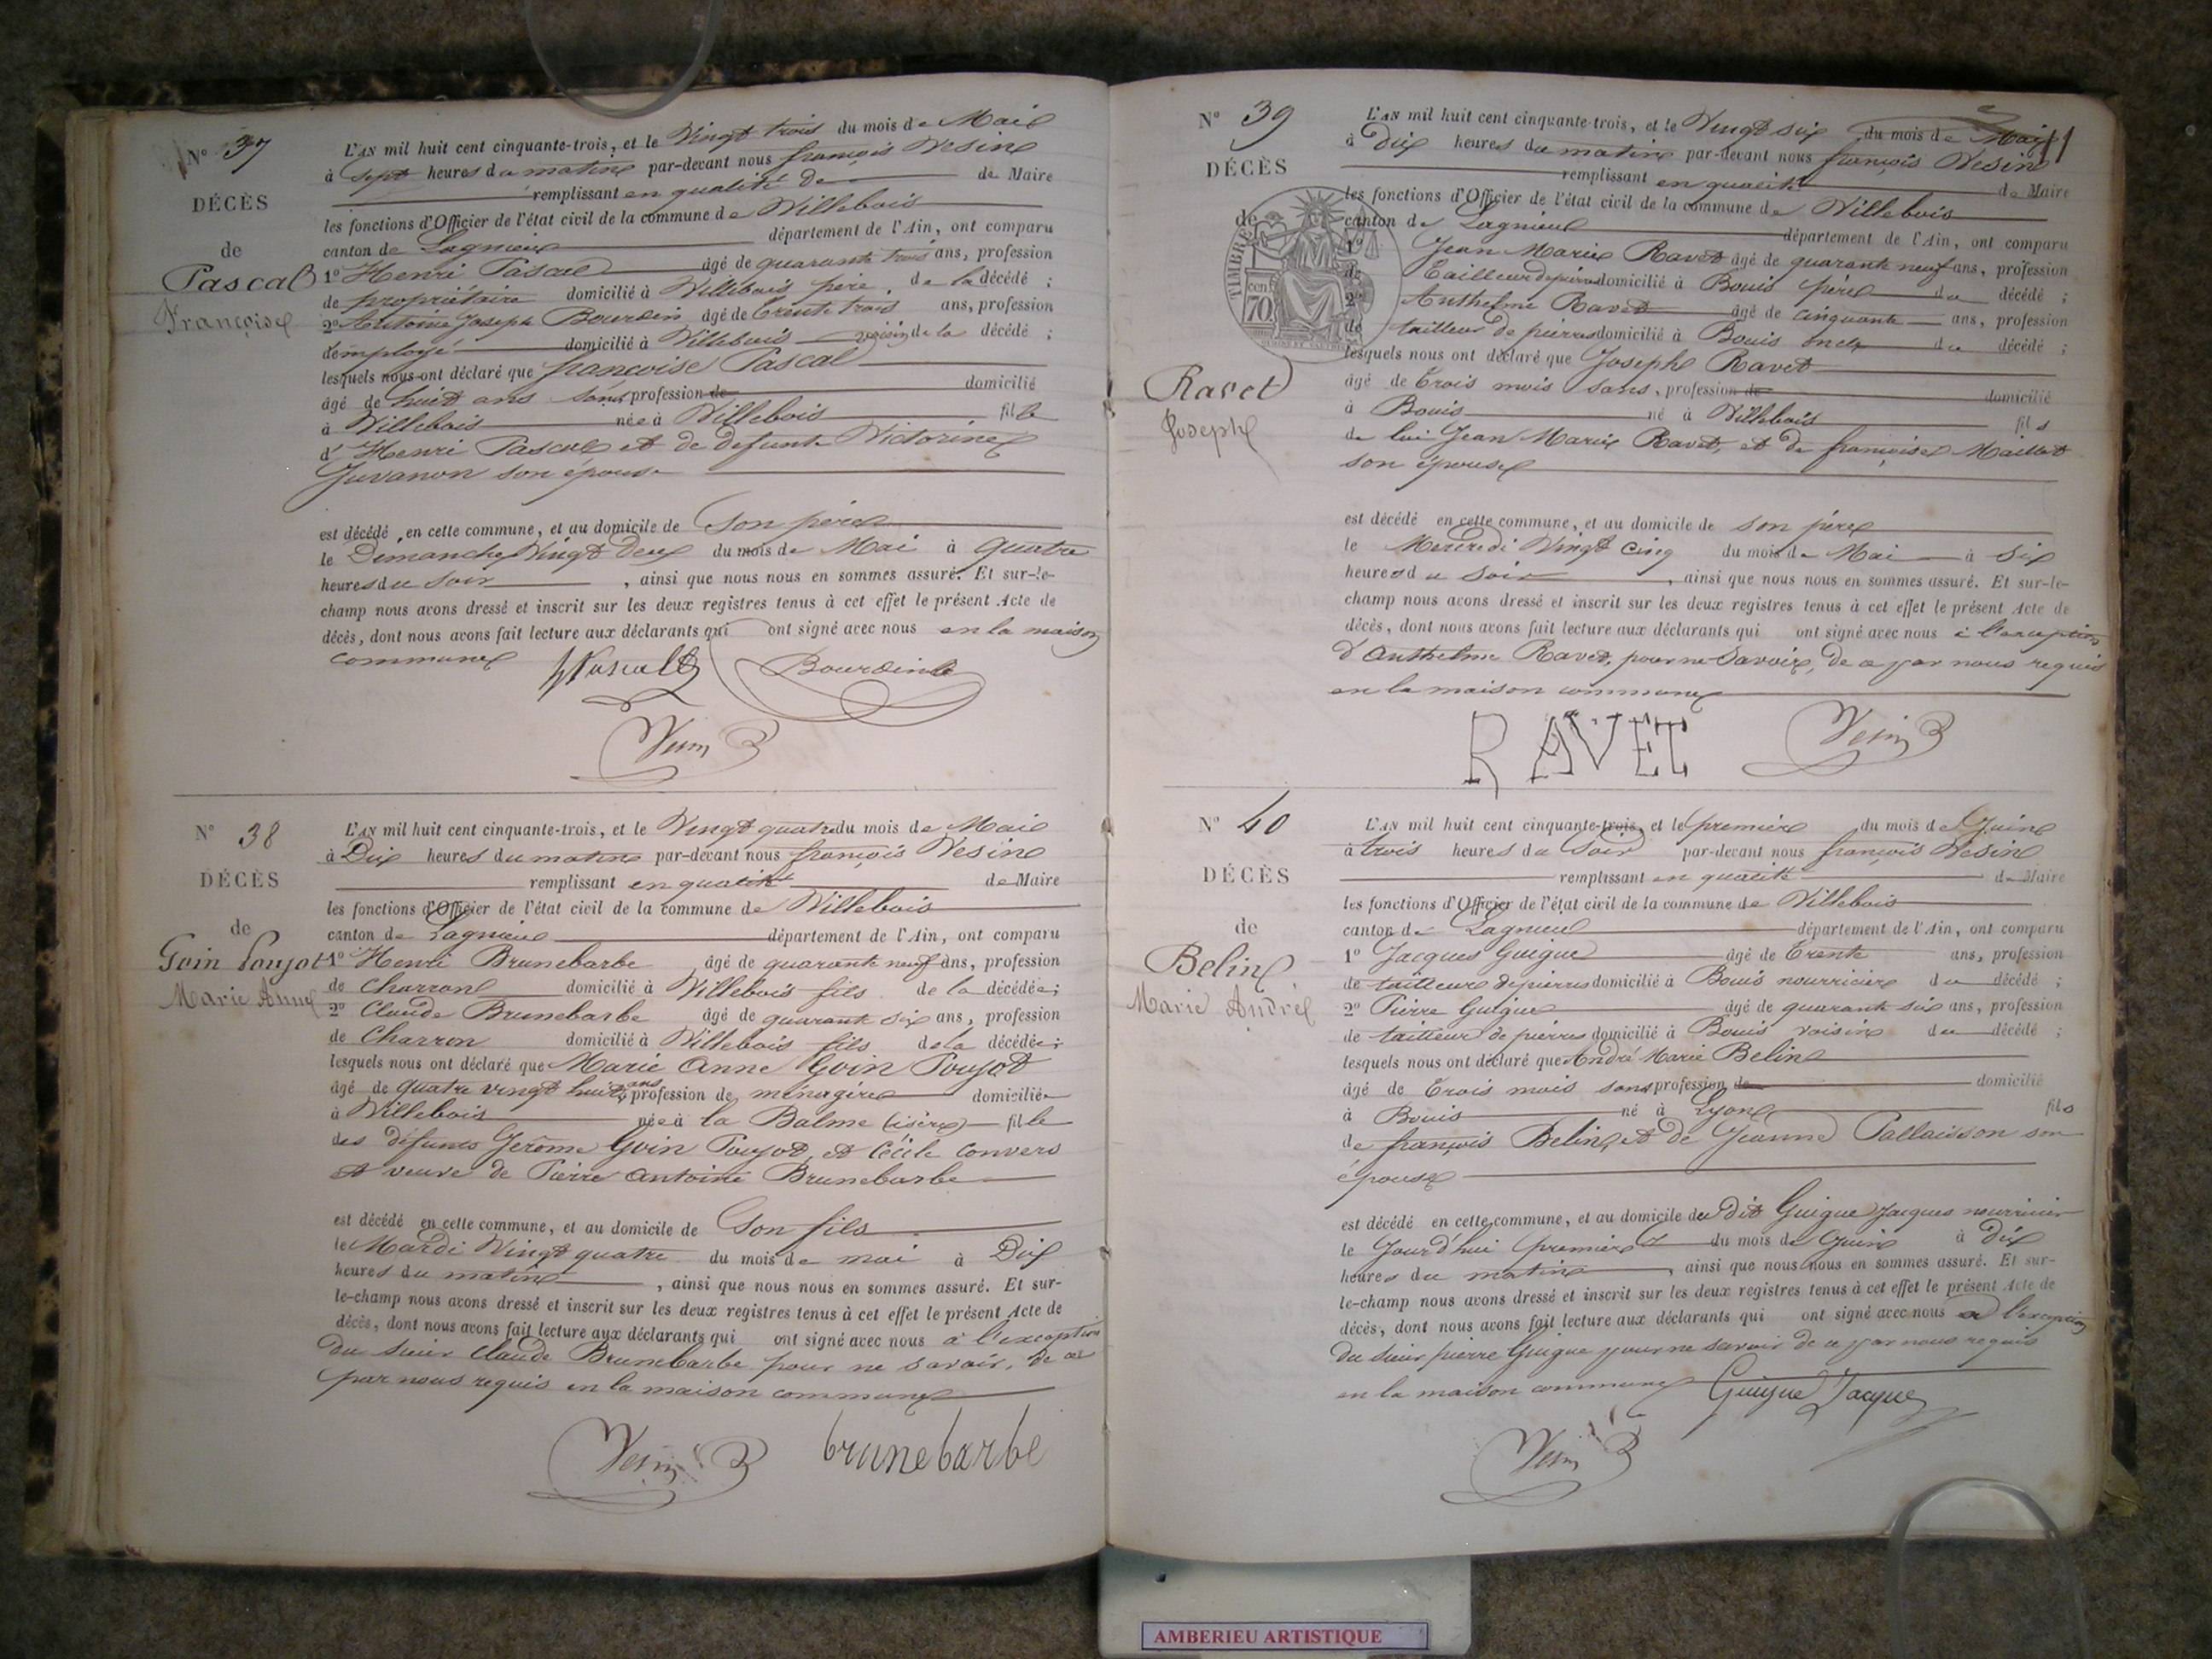 N° 37
DÉCÈS
de
Pascal
Françoise
L'AN mil huit cent cinquante-trois, et le Vingt trois du mois de Mai
à sept heures du matin par-devant nous françois Vesin
remplissant en qualité de de Maire
les fonctions d'Officier de l'état civil de la commune de Villebois
canton de Lagnieu département de l'Ain, ont comparu
1° Henri Pascal âgé de quarante trois ans, profession
de propriétaire domicilié à Villebois père de la décédé ;
2° Antoine Joseph Bourdin âgé de trente trois ans, profession
d'employé domicilié à Villebois voisin de la décédé ;
lesquels nous ont déclaré que françoise Pascal
âgé de huit ans sans profession de domicilié
à Villebois née à Villebois fille
d' Henri Pascal et de defunte Victorine
Juvanon son épouse
est décédé en cette commune, et au domicile de son père
le Dimanche Vingt deux du mois de Mai à quatre
heures du soir , ainsi que nous nous en sommes assuré. Et sur-le-
champ nous avons dressé et inscrit sur les deux registres tenus à cet effet le présent Acte de
décès, dont nous avons fait lecture aux déclarants qui ont signé avec nous en la maison
commune
Pascal Bourdin
Vesin
N° 38
DÉCÈS
de
Goin Poujot
Marie Anne
L'AN mil huit cent cinquante-trois, et le Vingt quatre du mois de Mai
à Dix heures du matin par-devant nous françois Vesin
remplissant en qualité de Maire
les fonctions d'Officier de l'état civil de la commune de Villebois
canton de Lagnieu département de l'Ain, ont comparu
1° Henri Brunebarbe âgé de quarante neuf ans, profession
de Charron domicilié à Villebois fils de la décédée ;
2° Claude Brunebarbe âgé de quarante six ans, profession
de Charron domicilié à Villebois fils de la décédée ;
lesquels nous ont déclaré que Marie Anne Goin Poujot
âgé de quatre vingt huit ans profession de ménagère domiciliée
à Villebois née à la Balme (isère) fille
des défunts Jerôme Goin Poujot, et Cécile Convers
et veuve de Pierre Antoine Brunebarbe
est décédé en cette commune, et au domicile de son fils
le Mardi Vingt quatre du mois de mai à Dix
heures du matin , ainsi que nous nous en sommes assuré. Et sur-
le-champ nous avons dressé et inscrit sur les deux registres tenus à cet effet le présent Acte de
décès, dont nous avons fait lecture aux déclarants qui ont signé avec nous à l'exception
du sieur Claude Brunebarbe pour ne savoir, de ce
par nous requis en la maison commune
Vesin brunebarbe
N° 39
DÉCÈS
de
Ravet
Joseph
TIMBRE
cent
70
L'AN mil huit cent cinquante-trois, et le Vingt six du mois de Mai
à Dix heures du matin par-devant nous françois Vesin
remplissant en qualité de Maire
les fonctions d'Officier de l'état civil de la commune de Villebois
canton de Lagnieu département de l'Ain, ont comparu
1° Jean Marie Ravet âgé de quarante neuf ans, profession
de Tailleur de pierres domicilié à Bouis père du décédé ;
2° Anthelme Ravet âgé de cinquante ans, profession
de tailleur de pierres domicilié à Bouis oncle du décédé ;
lesquels nous ont déclaré que Joseph Ravet
âgé de trois mois sans profession de domicilié
à Bouis né à Villebois fils
de lui Jean Marie Ravet, et de françoise Maillet
son épouse
est décédé en cette commune, et au domicile de son père
le Mercredi Vingt cinq du mois de Mai à six
heures du soir , ainsi que nous nous en sommes assuré. Et sur-le-
champ nous avons dressé et inscrit sur les deux registres tenus à cet effet le présent Acte de
décès, dont nous avons fait lecture aux déclarants qui ont signé avec nous à l'exception
d'Anthelme Ravet, pour ne savoir, de ce par nous requis
en la maison commune
RAVET Vesin
N° 40
DÉCÈS
de
Belin
Marie André
L'AN mil huit cent cinquante-trois, et le premier du mois de Juin
à trois heures du soir par-devant nous françois Vesin
remplissant en qualité de Maire
les fonctions d'Officier de l'état civil de la commune de Villebois
canton de Lagnieu département de l'Ain, ont comparu
1° Jacques Guigue âgé de trente ans, profession
de tailleur de pierres domicilié à Bouis nourricier du décédé ;
2° Pierre Guigue âgé de quarante six ans, profession
de tailleur de pierres domicilié à Bouis voisin du décédé ;
lesquels nous ont déclaré que André Marie Belin
âgé de trois mois sans profession de domicilié
à Bouis né à Lyon fils
de françois Belin, et de Jeanne Pallaisson son
épouse
est décédé en cette commune, et au domicile du dit Guigue Jacques nourricier
le Jourd'hui premier du mois de Juin à dix
heures du matin , ainsi que nous nous en sommes assuré. Et sur-
le-champ nous avons dressé et inscrit sur les deux registres tenus à cet effet le présent Acte de
décès, dont nous avons fait lecture aux déclarants qui ont signé avec nous à l'exception
du sieur pierre Guigue pour ne savoir de ce par nous requis
en la maison commune Guigue Jacque
Vesin
AMBERIEU ARTISTIQUE